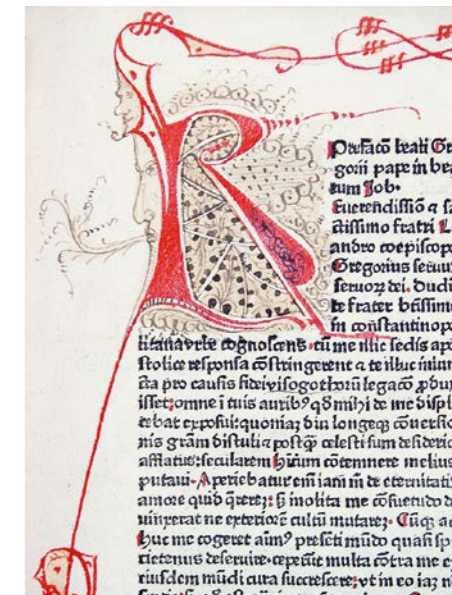 Prefacō beati Gre
gorii pape in bea
tum Job.
Euerendissīo ꝛ sā
ctissimo fratri L
andro coepiscopo
Gregorius seruus
seruoꝝ dei. Dudū
te frater btīssime
in constantinopo
litana vrbe cognoscens. cū me illic sedis apo
stolice responsa cōstringerent ꝛ te illuc iniun
cta pro causis fidei visogothoꝝ legacō ꝑdux
isset: omne ī tuis auribꝰ qd mihi de me displ
cebat exposui: quoniaꝫ diu longeqꝫ cōuersio
nis grām distuli ꝛ postqꝫ celesti sum desiderio
afflatus: seculari hītum cōtemnere melius
putaui. Aperiebatur eīm iam m de eternitatis
amore quid qrereꝫ: sꝫ īnolita me cōsuetudo de
uinxerat ne exteriorē cultū mutareꝫ. Cūqꝫ ad
huc me cogeret aimꝰ presēti mūdo quasi sp
cietenus deseruire. ceperūt multa cōtra me ex
eiusdem mūdi cura succrescere: vt in eo iaꝫ nō